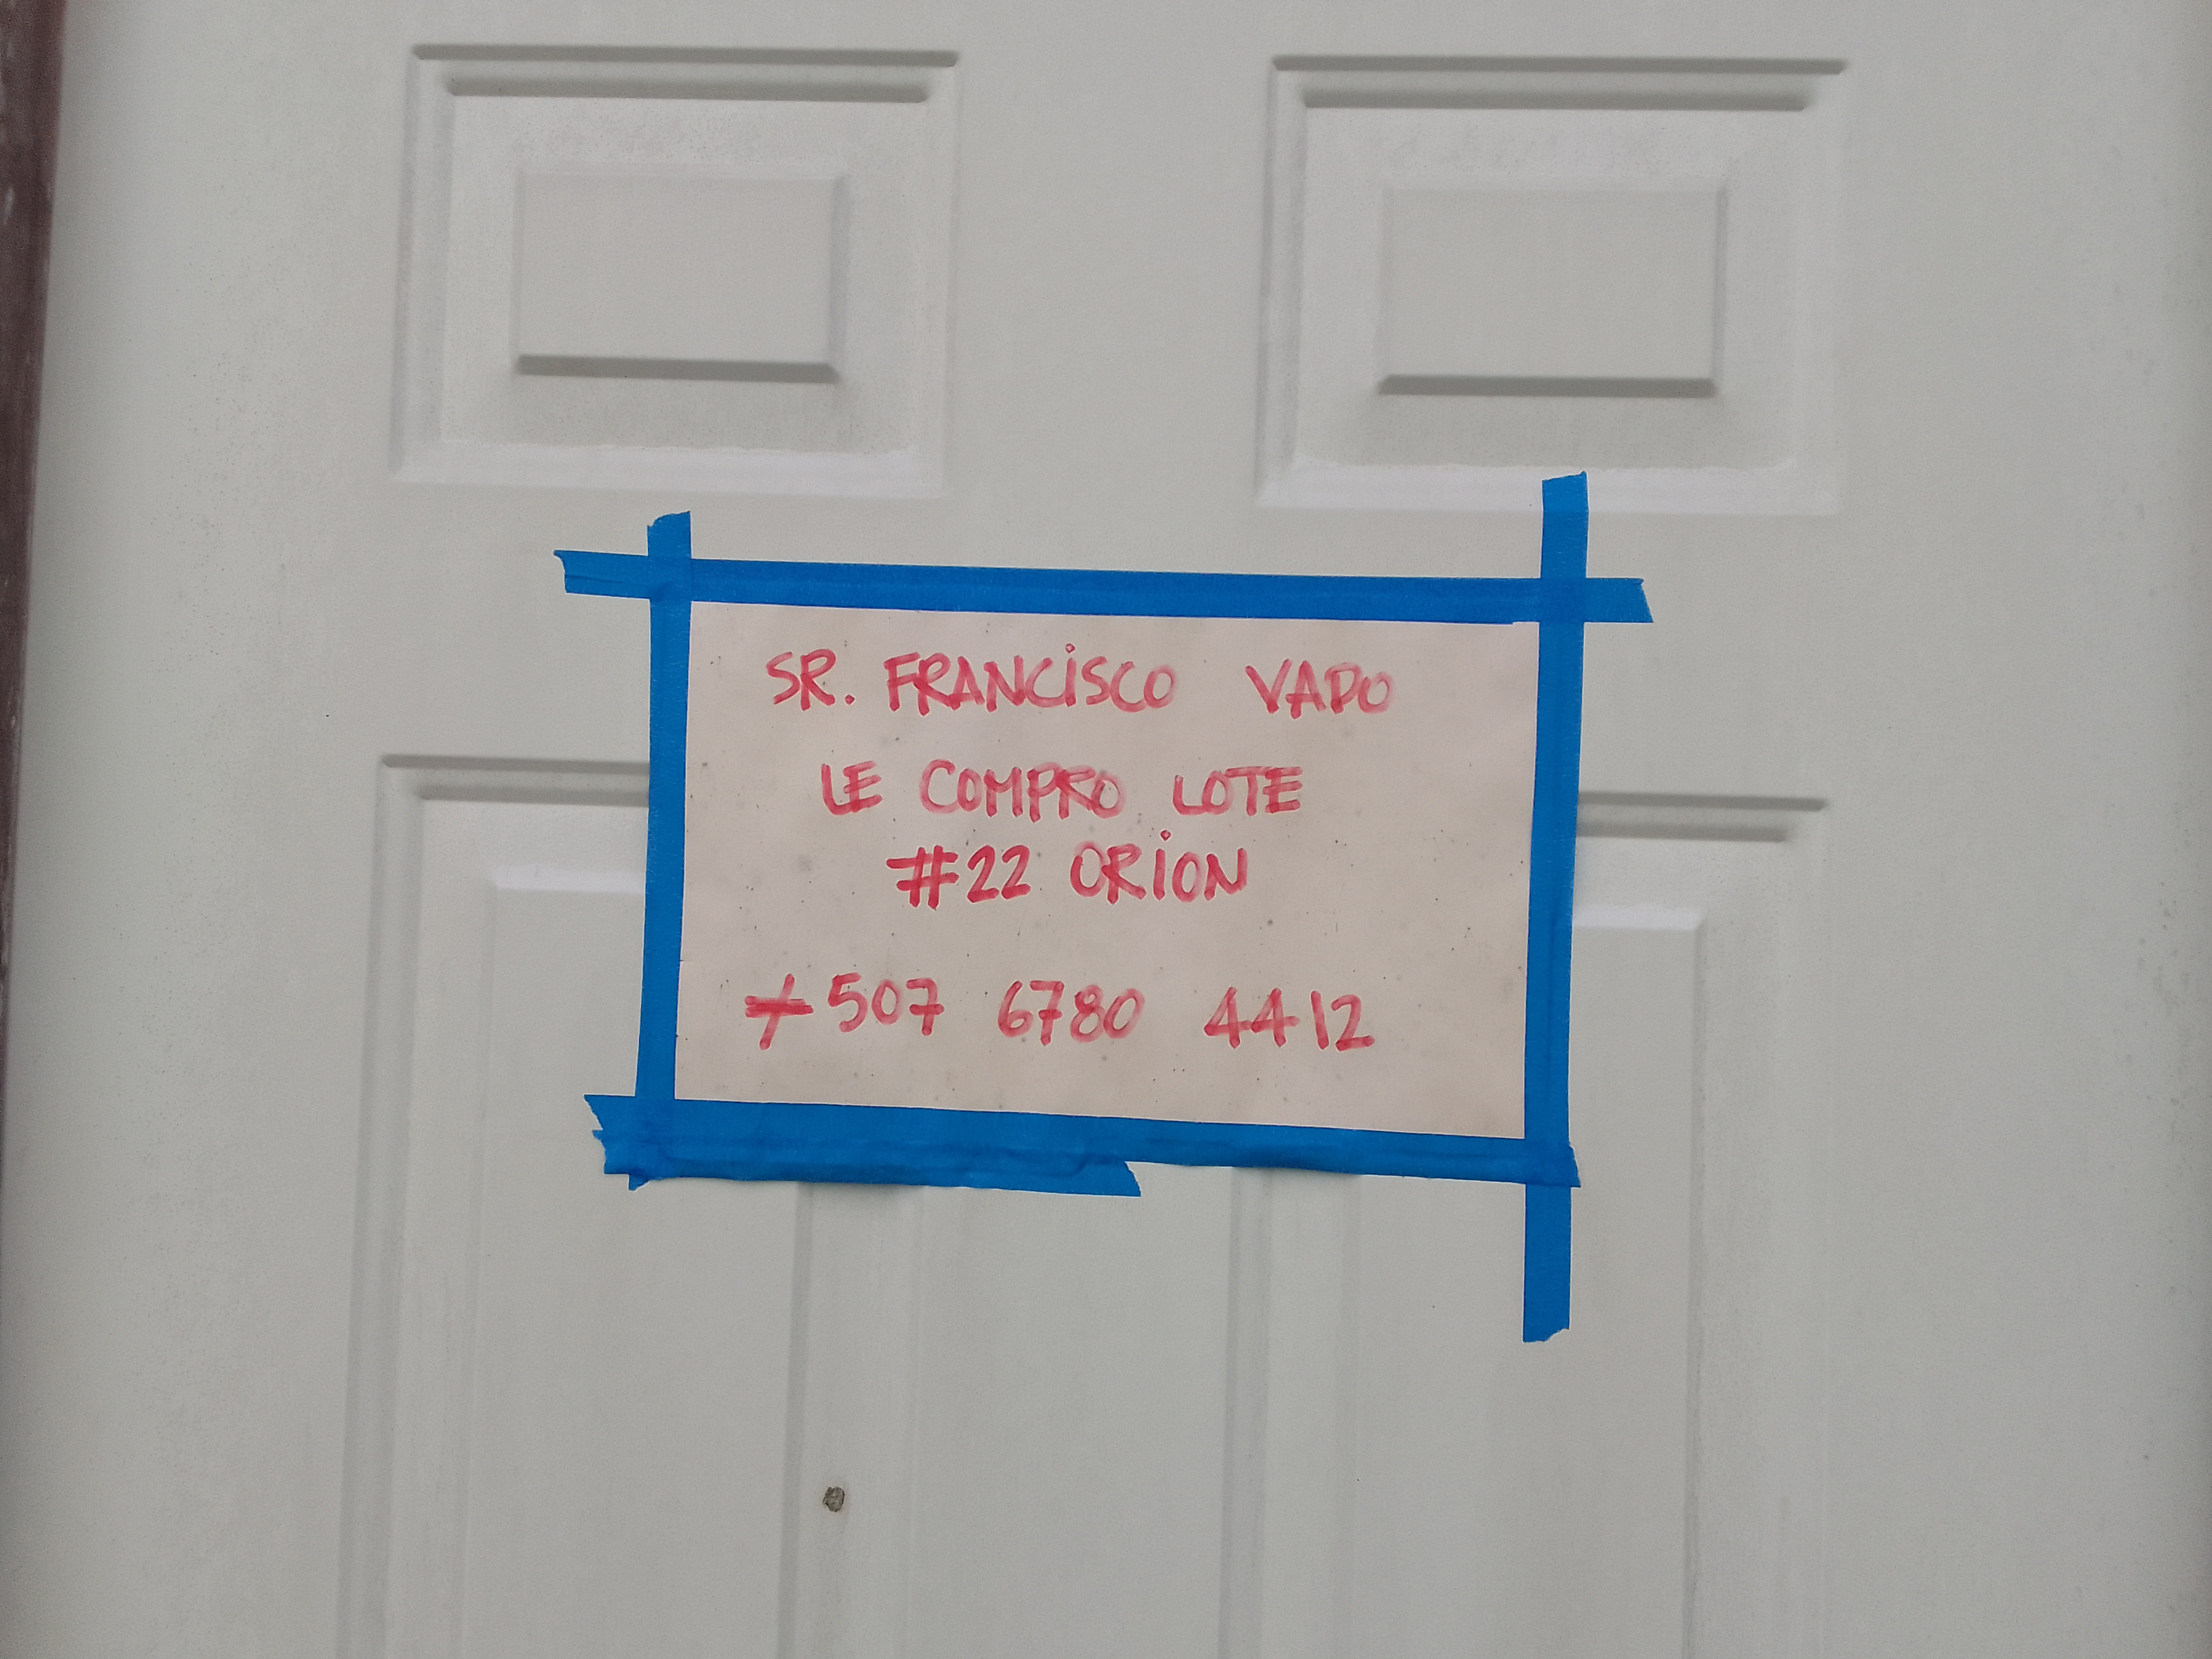 SR. FRANCISCO VADO
LE COMPRO LOTE
#22 ORION
+507 6780 4412